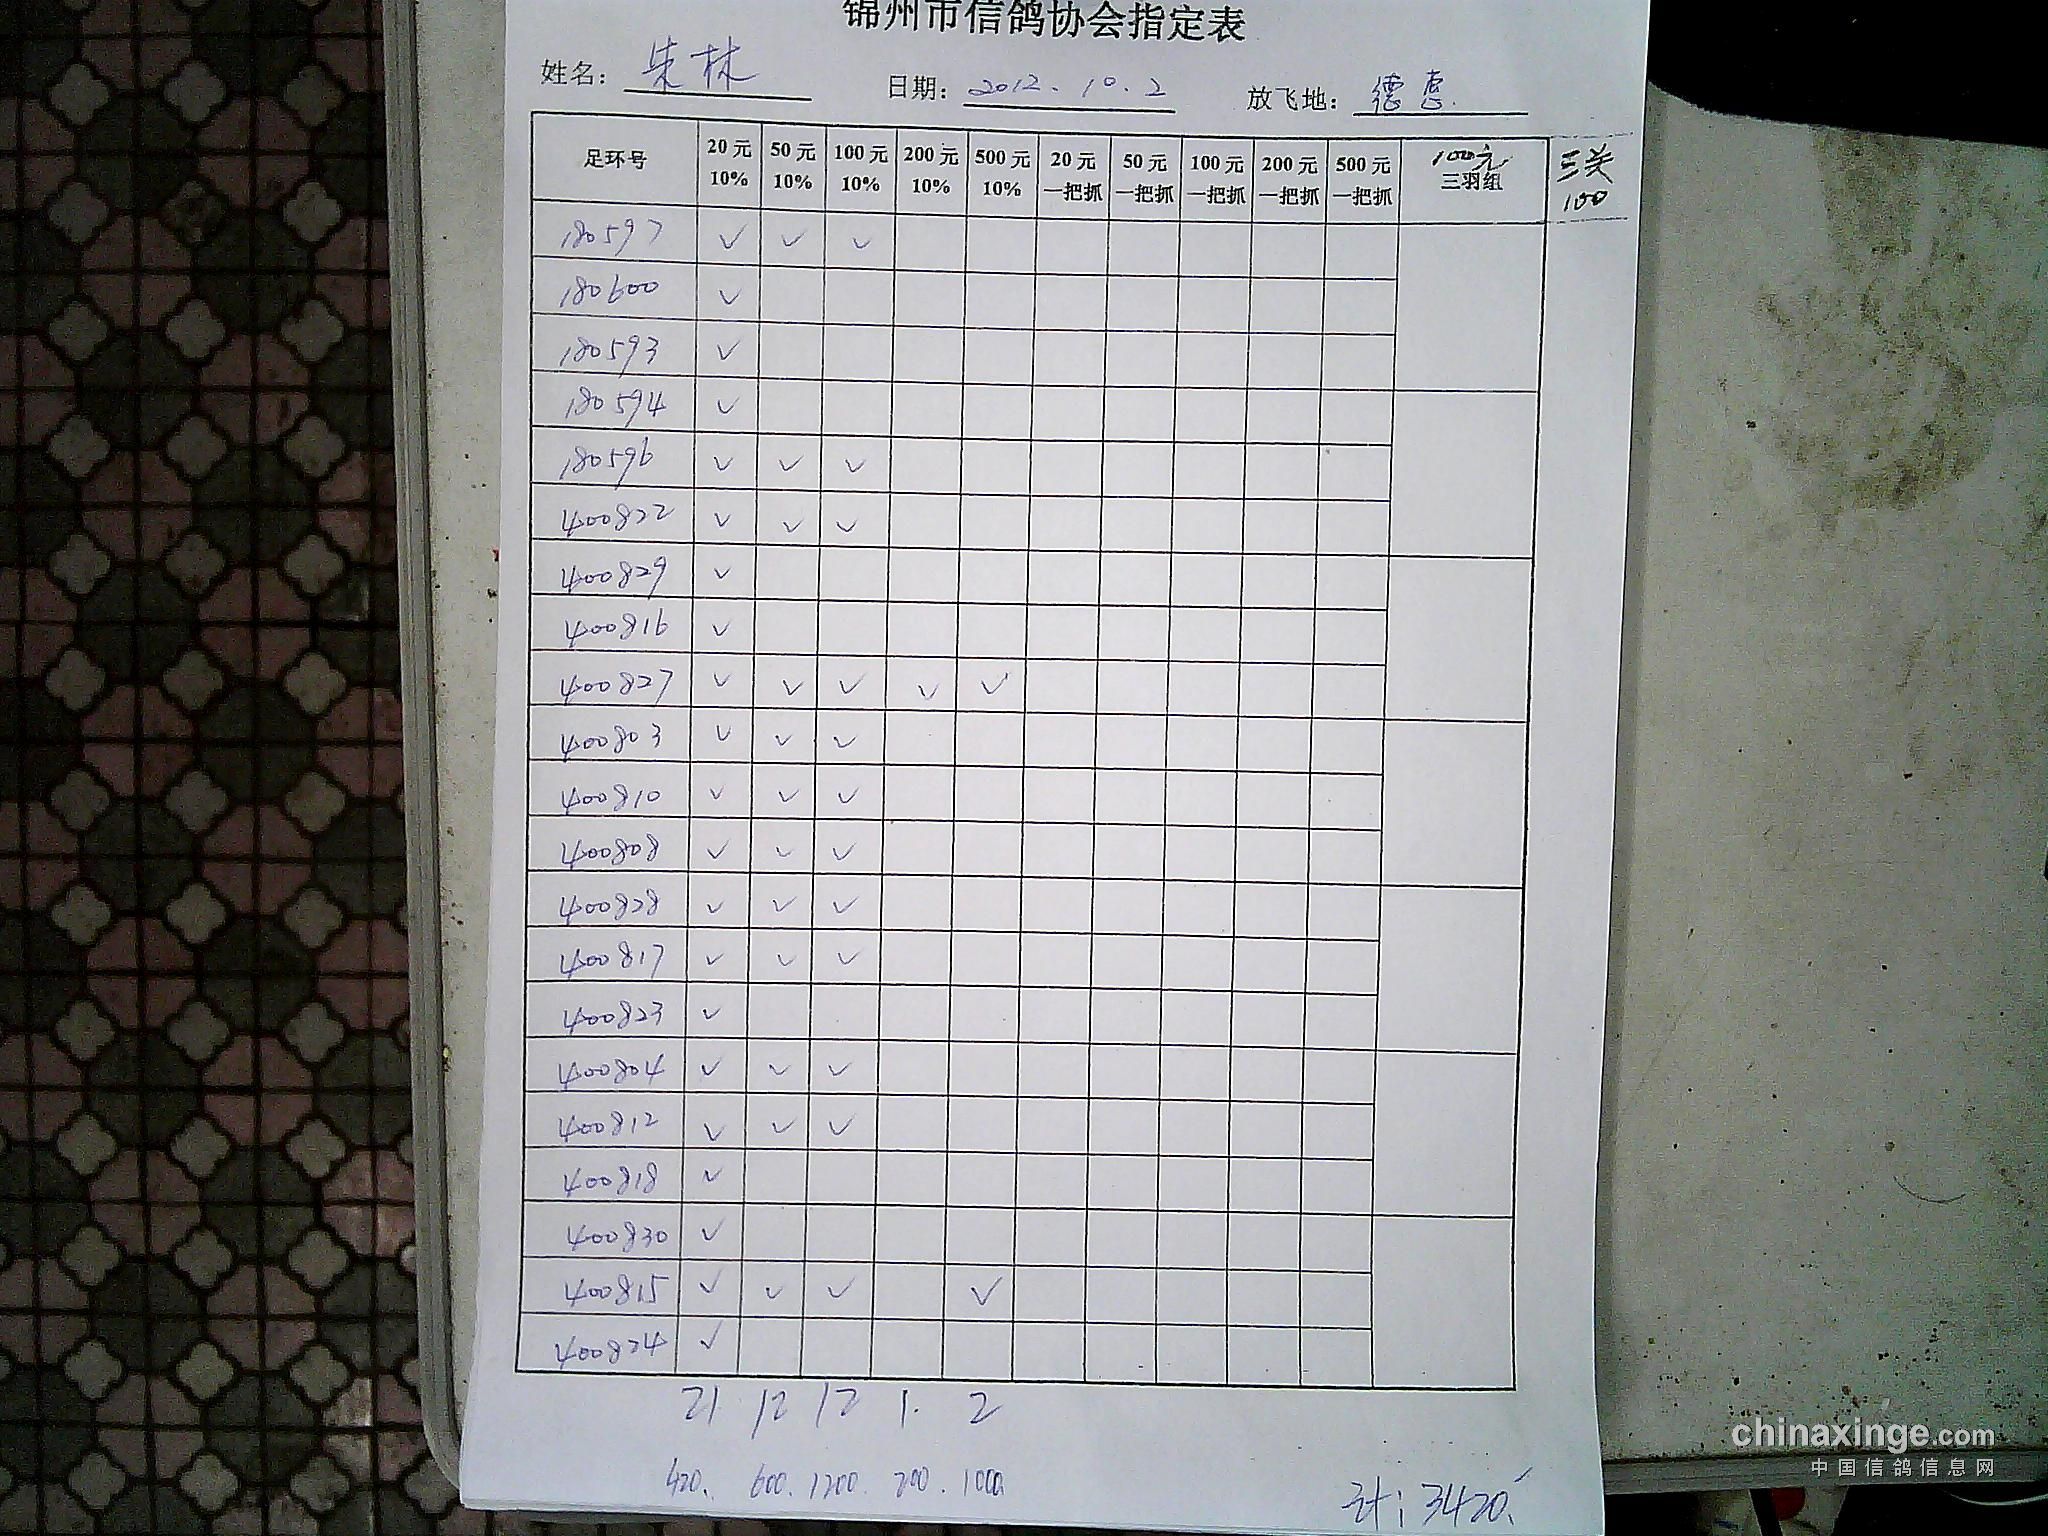 锦州市信鸽协会指定表
姓名: 朱林 日期: 2012.10.2 放飞地: 德惠.
足环号 20元 10% 50元 10% 100元 10% 200元 10% 500元 10% 20元 一把抓 50元 一把抓 100元 一把抓 200元 一把抓 500元 一把抓 100元 三羽组 三关 100
180597 ✓ ✓ ✓
180600 ✓
180593 ✓
180594 ✓
180596 ✓ ✓ ✓
400822 ✓ ✓ ✓
400829 ✓
400816 ✓
400827 ✓ ✓ ✓ ✓ ✓
400803 ✓ ✓ ✓
400810 ✓ ✓ ✓
400808 ✓ ✓ ✓
400828 ✓ ✓ ✓
400817 ✓ ✓ ✓
400823 ✓
400804 ✓ ✓ ✓
400812 ✓ ✓ ✓
400818 ✓
400830 ✓
400815 ✓ ✓ ✓ ✓
400824 ✓
21 12 12 1. 2
420. 600. 1200. 200. 1000
计: 3420.
chinaxinge.com
中国信鸽信息网